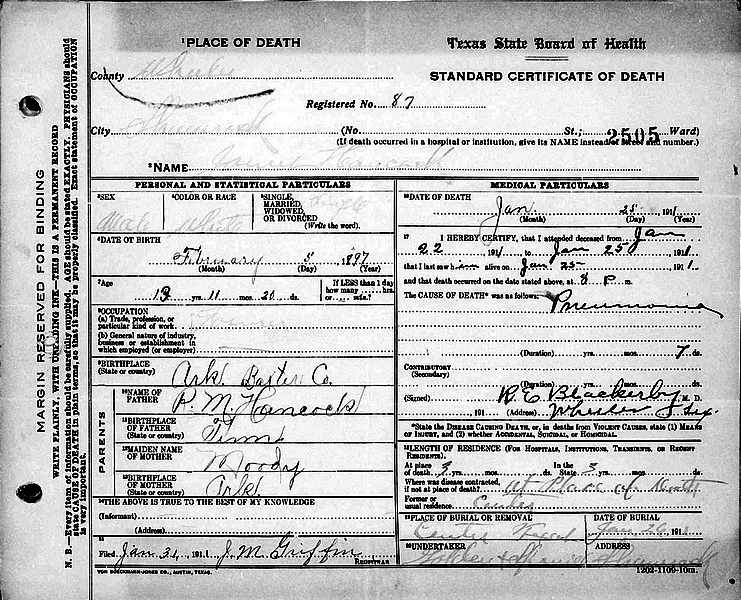 MARGIN RESERVED FOR BINDING
WRITE PLAINLY, WITH UNFADING INK—THIS IS A PERMANENT RECORD
N. B.—Every item of information should be carefully supplied. AGE should be stated EXACTLY. PHYSICIANS should
state CAUSE OF DEATH in plain terms, so that it may be properly classified. Exact statement of OCCUPATION
is very important.
1 PLACE OF DEATH
Texas State Board of Health
County
STANDARD CERTIFICATE OF DEATH
Registered No. 87
City Shamrock (No. St.; Ward)
2505
(If death occurred in a hospital or institution, give its NAME instead of street and number.)
2 NAME Hancock
PERSONAL AND STATISTICAL PARTICULARS
3 SEX Male
4 COLOR OR RACE White
5 SINGLE, MARRIED, WIDOWED, OR DIVORCED (Write the word). Single
6 DATE OF BIRTH
February 5 1897
(Month) (Day)
7 Age
13 yrs. 11 mos. 20 ds.
If LESS than 1 day, how many hrs. or min.?
8 OCCUPATION
(a) Trade, profession, or
particular kind of work
(b) General nature of industry,
business or establishment in
which employed (or employer)
9 BIRTHPLACE
(State or country) Ark. Baxter Co.
PARENTS
10 NAME OF
FATHER R. M. Hancock
11 BIRTHPLACE
OF FATHER
(State or country) Tinn
12 MAIDEN NAME
OF MOTHER Moody
13 BIRTHPLACE
OF MOTHER
(State or country) Ark
14 THE ABOVE IS TRUE TO THE BEST OF MY KNOWLEDGE
(Informant)
(Address)
15
Filed Jan 31, 1911 J. M. Griffin
REGISTRAR
VON BOECKMANN-JONES CO., AUSTIN, TEXAS.
MEDICAL PARTICULARS
16 DATE OF DEATH
Jan 25 1911
(Month) (Day)
17 I HEREBY CERTIFY, that I attended deceased from Jan
22 1911 to Jan 25 1911
that I last saw him alive on Jan 25 1911.
and that death occurred on the date stated above, at 8 P m.
The CAUSE OF DEATH* was as follows: Pneumonia
(Duration) yrs. mos. 7 ds.
CONTRIBUTORY
(Secondary)
(Duration) yrs. mos. ds.
(Signed) R. E. Blackerby M. D.
191 (Address) Wheeler Tex.
*State the DISEASE CAUSING DEATH, or, in deaths from VIOLENT CAUSES, state (1) MEANS
OF INJURY, and (2) whether ACCIDENTAL, SUICIDAL, OR HOMICIDAL.
18 LENGTH OF RESIDENCE (FOR HOSPITALS, INSTITUTIONS, TRANSIENTS, OR RECENT
RESIDENTS).
At place of death 3 yrs. mos. ds. In the State 3 yrs. mos. ds.
Where was disease contracted,
if not at place of death? At Place of Death
Former or
usual residence
19 PLACE OF BURIAL OR REMOVAL
DATE OF BURIAL
Jan 26 1911
20 UNDERTAKER
ADDRESS
Shamrock
1202-1109-10m.